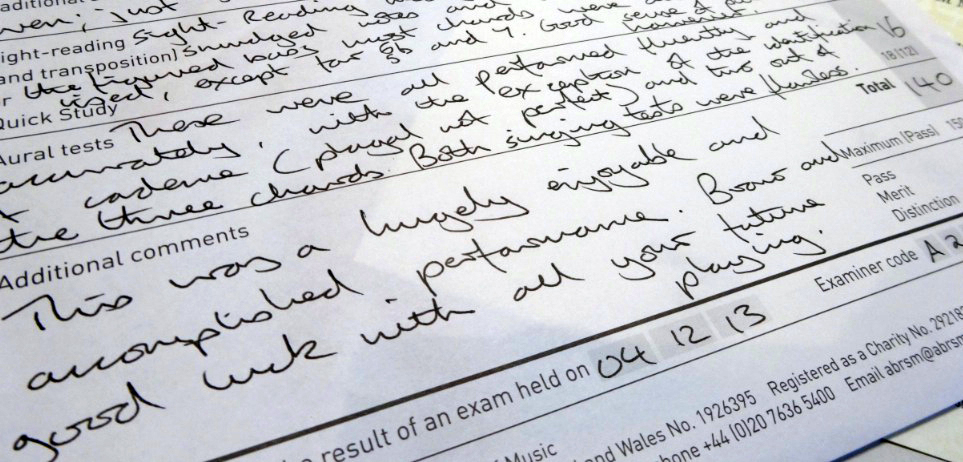 Sight-reading Sight-Reading
and transposition) smudged notes and
the figured bass most chords were
Quick Study used, except for 5b and 7. Good sense of
Aural tests These were all performed fluently and 16
accurately, with the exception of the identification 18(12)
of cadence (plagal not perfect) and two out of
the three chords. Both singing tests were flawless.
Total 140
Additional comments
This was a hugely enjoyable and
accomplished performance. Bravo and
good luck with all your future
playing.
Maximum (Pass) 150
Pass
Merit
Distinction
result of an exam held on 04 12 13 Examiner code A2
Music
and Wales No. 1926395 Registered as a Charity No. 29218
phone +44 (0)20 7636 5400 Email abrsm@abrsm